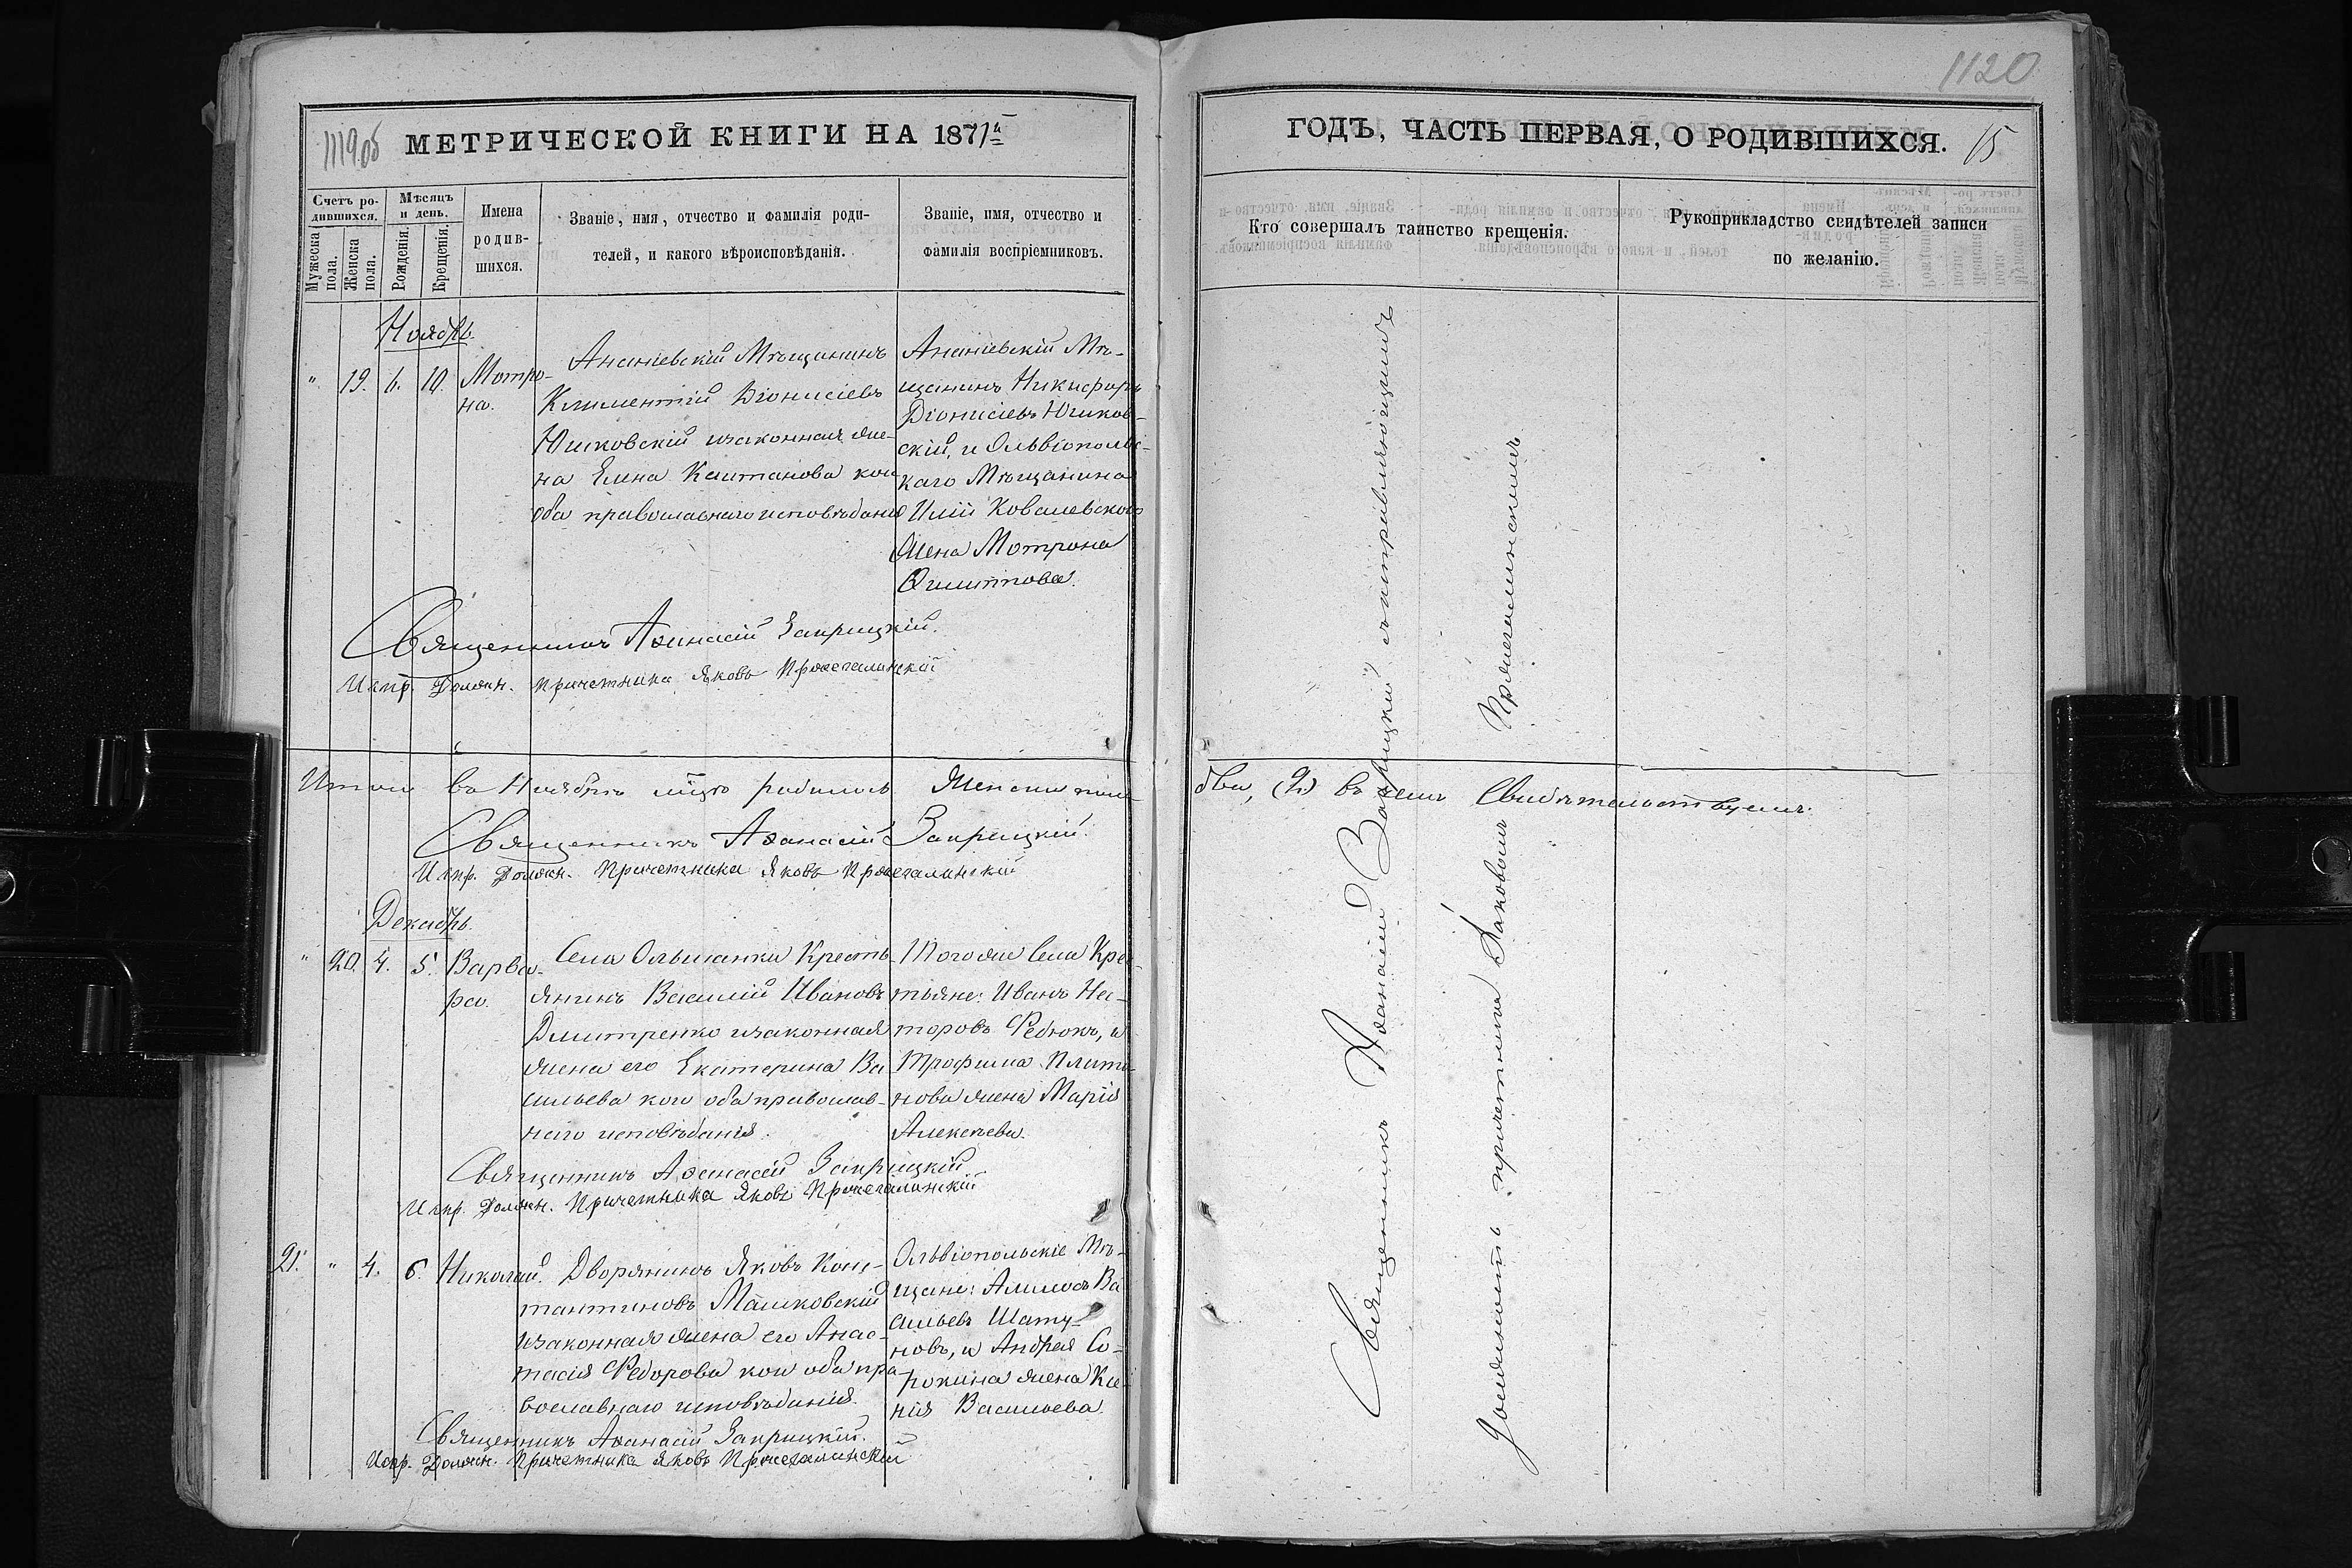 1119 об
МЕТРИЧЕСКОЙ КНИГИ НА 1871й
Счетъ ро-
дившихся.
Мужеска
пола.
Женска
пола.
Мѣсяцъ
и день.
Рожденія.
Крещенія.
Имена
родив-
шихся.
Званіе, имя, отчество и фамилія роди-
телей, и какого вѣроисповѣданія.
Званіе, имя, отчество и
фамилія воспріемниковъ.
Ноябрь.
" 19. 6. 10. Мотро-
на.
Ананіевскій Мѣщанинъ
Климентій Діонисіевъ
Юшковскій изаконная же-
на Елена Каитанова кои
оба православнаго исповѣданія
Ананіевскій Мѣ-
щанинъ Никифоръ
Діонисіевъ Юшков-
скій, и Ольвіопольс-
каго Мѣщанина
Иліи Ковалевского
жена Мотрона
Филиппова.
Священникъ Аѳанасій Закрицкій.
Испр. Должн. Причетника Яковъ
Итого въ Ноябрѣ мѣсяцѣ родилось Женска пола
Священникъ Аѳанасій Закрицкій.
Испр. Должн. Причетника Яковъ
Декабрь.
" 20. 4. 5. Варва-
ра.
Села Ольшанки Кресть-
янинъ Василій Ивановъ
Дмитренко изаконная
жена его Екатерина Ва
сильева кои оба православ-
наго исповѣданія.
Тогоже Села Крес-
тьяне: Иванъ Нес-
торовъ Федюкъ, и
Трофима Плато-
нова жена Марія
Алексѣева.
Священникъ Аѳанасій Закрицкій
Испр. Должн. Причетника Яковъ
21. " 4. 6. Николай.
Дворянинъ Яковъ Конс-
тантиновъ Машковскій
изаконная жена его Анас-
тасія Федорова кои оба пра-
вославнаго исповѣданія.
Ольвіопольскіе Мѣ-
щане: Ва
сильевъ Шату-
новъ, и Андрея Со-
рокина жена Ксе-
нія Васильева.
Священникъ Аѳанасій Закрицкій.
Испр. Должн. Причетника Яковъ
1120
ГОДЪ, ЧАСТЬ ПЕРВАЯ, О РОДИВШИХСЯ.
15
Кто совершалъ таинство крещенія.
Рукоприкладство свидѣтелей записи
по желанію.
два, (2) въ чемъ Свидѣтельствуемъ.
Священникъ Аѳанасій Закрицкій съ исправляющимъ
должность причетника Іаковомъ